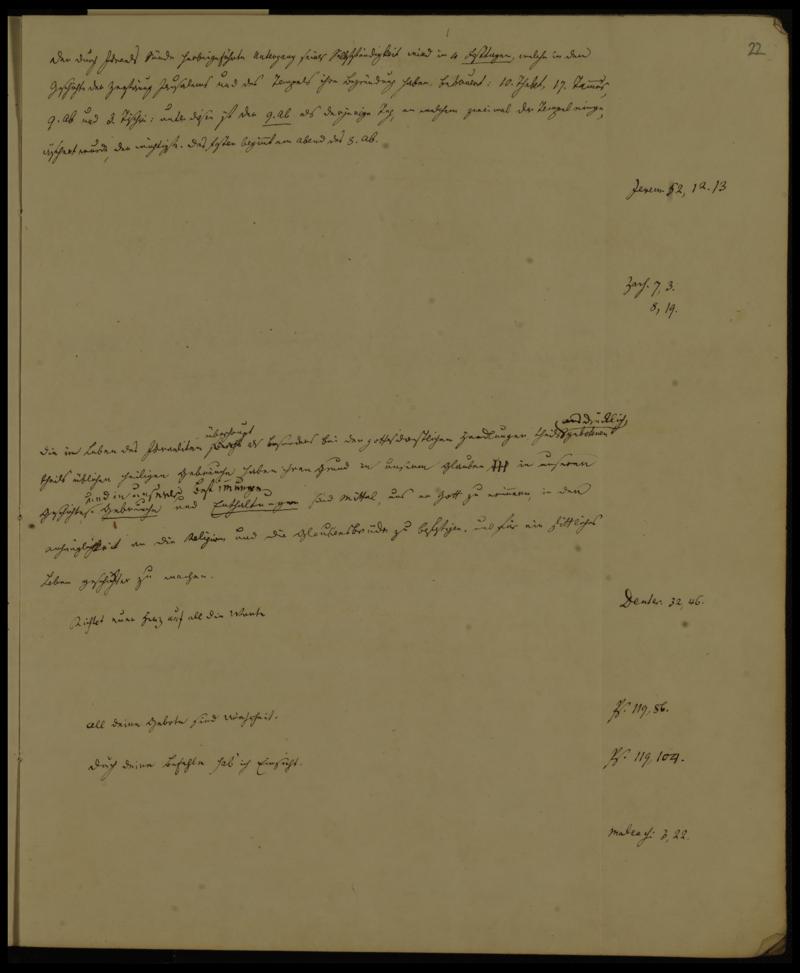 22
Der durch Israels Sünde herbeigeführte Untergang seiner Selbstständigkeit wird in 4 Fasttagen, welche in den
Geschichten der Zerstörung Jerusalems und des Tempels ihre Begründung haben, betrauert: 10. Thebet, 17. Tamus,
9. Ab und 3. Tischri: unter diesen ist der 9. Ab als derjenige Tag, an welchem zweimal der Tempel einge-
äschert wurde, der wichtigste. Das Fasten beginnt am Abend des 8. Ab.
Jerem. 52, 12.13
Zach. 7, 3.
8, 19.
überhaupt
ausdrücklich
Die im Leben des Israeliten als besonders bei den gottesdienstlichen Handlungen theils gebotenen
theils üblichen heiligen Gebräuche haben ihren Grund in unserem Glauben in unserer
und in unseren Bestimmungen
Geschichte. Gebräuche und Enthaltungen sind Mittel, uns an Gott zu erinnern, in der
Anhänglichkeit an die Religion und die Glaubensbrüder zu befestigen, und für ein sittliches
Leben geschickter zu machen.
Richtet euer Herz auf all die Worte
Deuter. 32, 46.
All deine Gebote sind Wahrheit.
Ps. 119, 86.
Durch deine Befehle hab' ich Einsicht.
Ps. 119, 104.
Maleachi 3, 22.